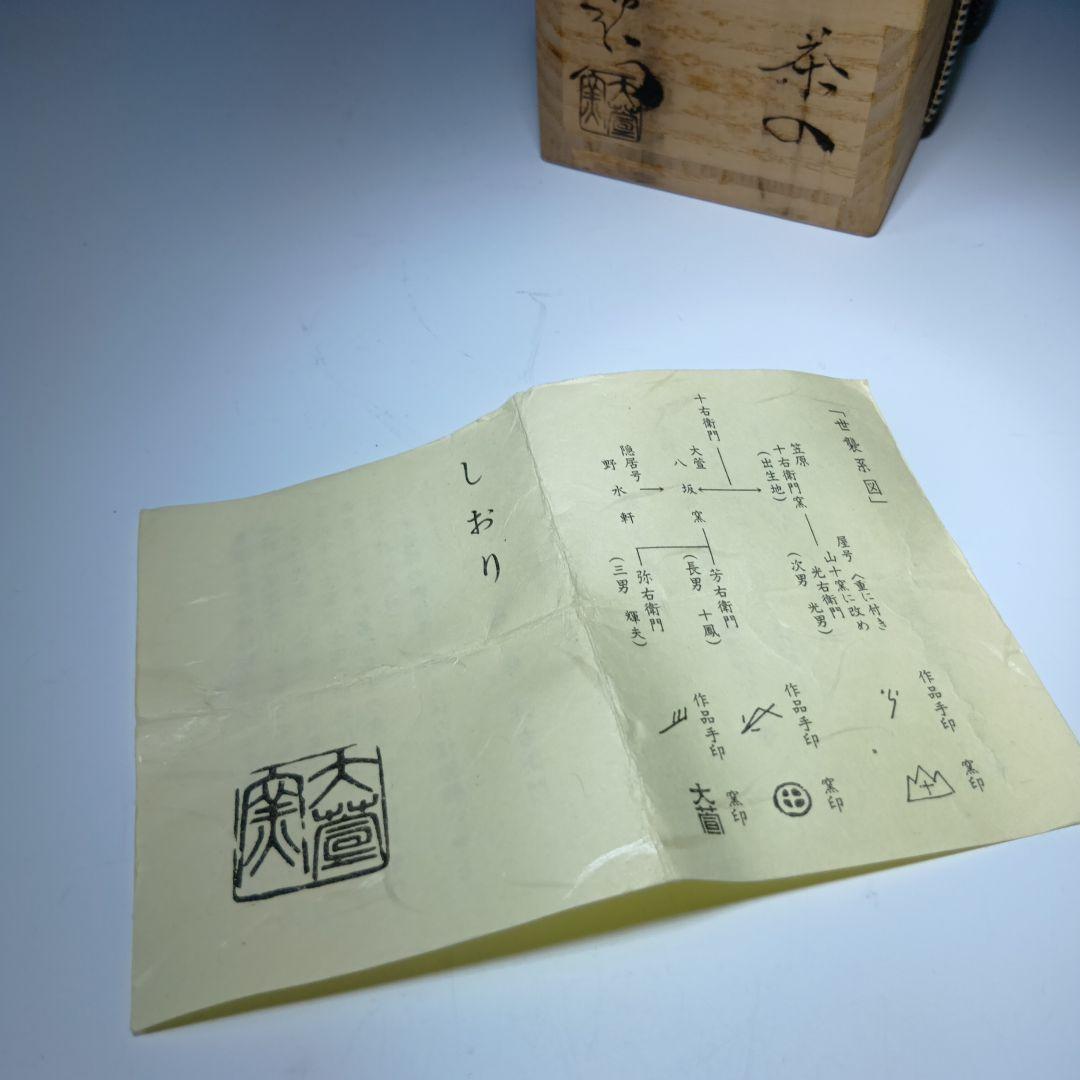 茶の
大萱
窯
「世襲系図」
笠原
十右衛門窯
(出生地)
屋号 (重に付き
山十窯に改め
光右衛門
(次男 光男)
作品手印
窯印
十
十右衛門
大萱
八坂窯
芳右衛門
(長男 十鳳)
作品手印
窯印
隠居号
野水軒
弥右衛門
(三男 輝夫)
作品手印
窯印
大萱
しおり
大萱
窯